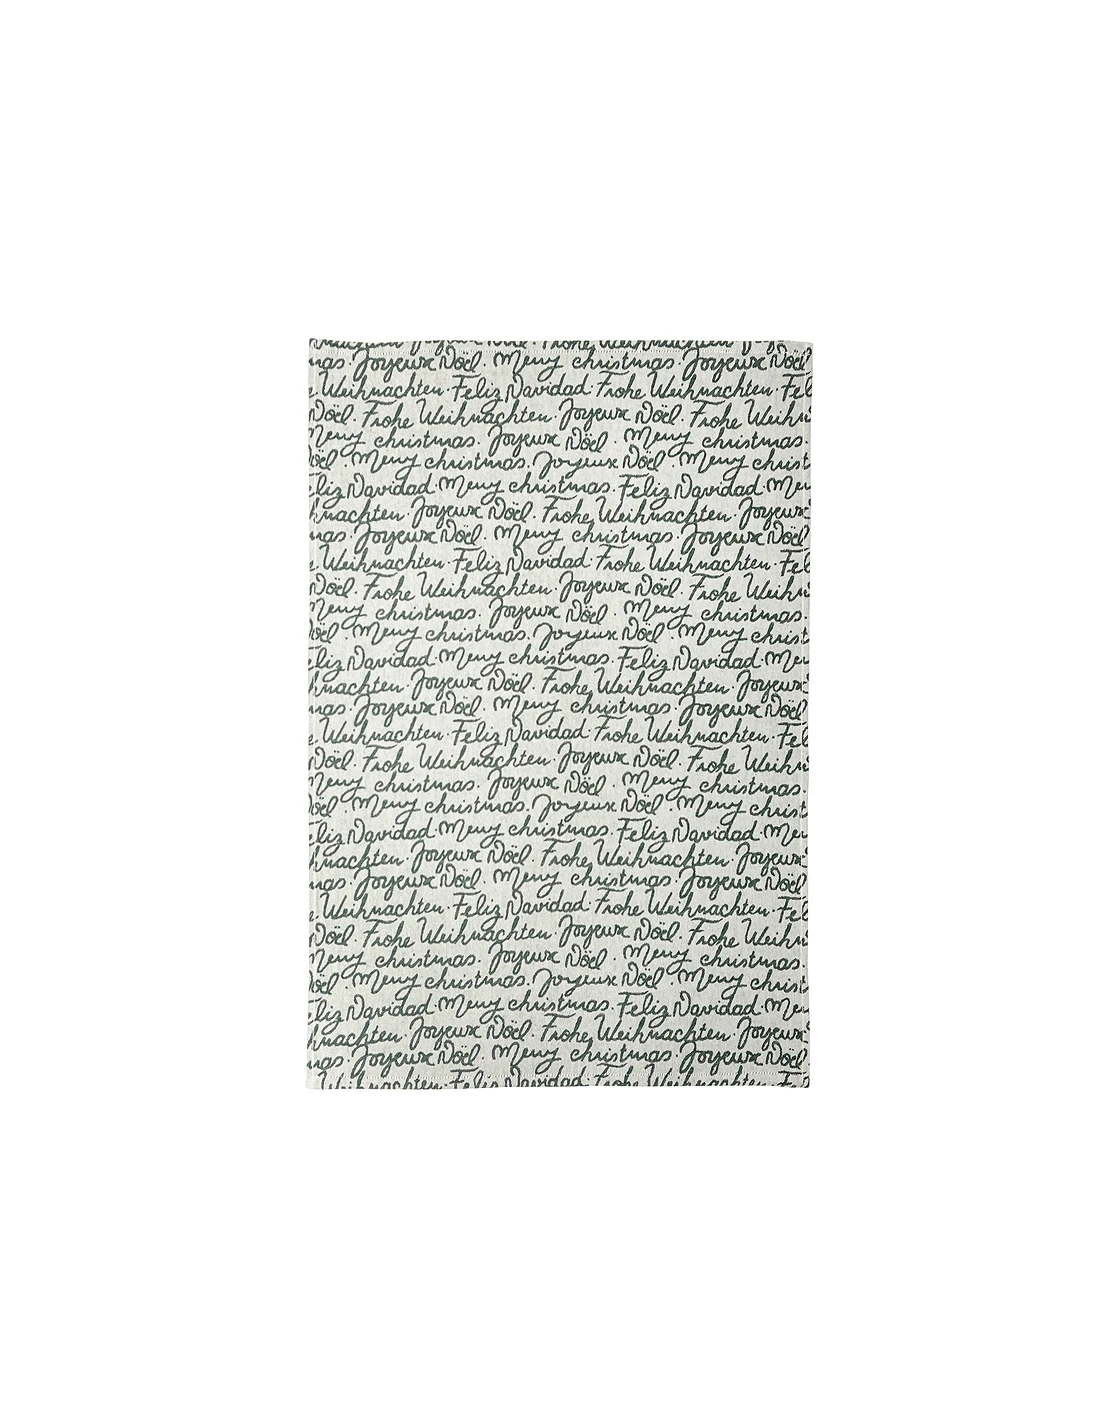 Frohe Weihnachten
mas. Joyeux Nöel. Merry christmas. Joyeux Nöel
e Weihnachten. Feliz Navidad. Frohe Weihnachten. Fel
Nöel. Frohe Weihnachten. Joyeux Nöel. Frohe Weihn
Merry christmas. Joyeux Nöel. Merry christmas.
Nöel. Merry christmas. Joyeux Nöel. Merry christ
eliz Navidad. Merry christmas. Feliz Navidad. Mer
hnachten. Joyeux Nöel. Frohe Weihnachten. Joyeux
mas. Joyeux Nöel. Merry christmas. Joyeux Nöel
e Weihnachten. Feliz Navidad. Frohe Weihnachten. Fel
Nöel. Frohe Weihnachten. Joyeux Nöel. Frohe Weihn
Merry christmas. Joyeux Nöel. Merry christmas.
Nöel. Merry christmas. Joyeux Nöel. Merry christ
eliz Navidad. Merry christmas. Feliz Navidad. Mer
hnachten. Joyeux Nöel. Frohe Weihnachten. Joyeux
mas. Joyeux Nöel. Merry christmas. Joyeux Nöel
e Weihnachten. Feliz Navidad. Frohe Weihnachten. Fel
Nöel. Frohe Weihnachten. Joyeux Nöel. Frohe Weihn
Merry christmas. Joyeux Nöel. Merry christmas.
Nöel. Merry christmas. Joyeux Nöel. Merry christ
eliz Navidad. Merry christmas. Feliz Navidad. Mer
hnachten. Joyeux Nöel. Frohe Weihnachten. Joyeux
mas. Joyeux Nöel. Merry christmas. Joyeux Nöel
e Weihnachten. Feliz Navidad. Frohe Weihnachten. Fel
Nöel. Frohe Weihnachten. Joyeux Nöel. Frohe Weihn
Merry christmas. Joyeux Nöel. Merry christmas.
Nöel. Merry christmas. Joyeux Nöel. Merry christ
eliz Navidad. Merry christmas. Feliz Navidad. Mer
hnachten. Joyeux Nöel. Frohe Weihnachten. Joyeux
mas. Joyeux Nöel. Merry christmas. Joyeux Nöel
Weihnachten. Feliz Navidad. Frohe Weihnachten. F